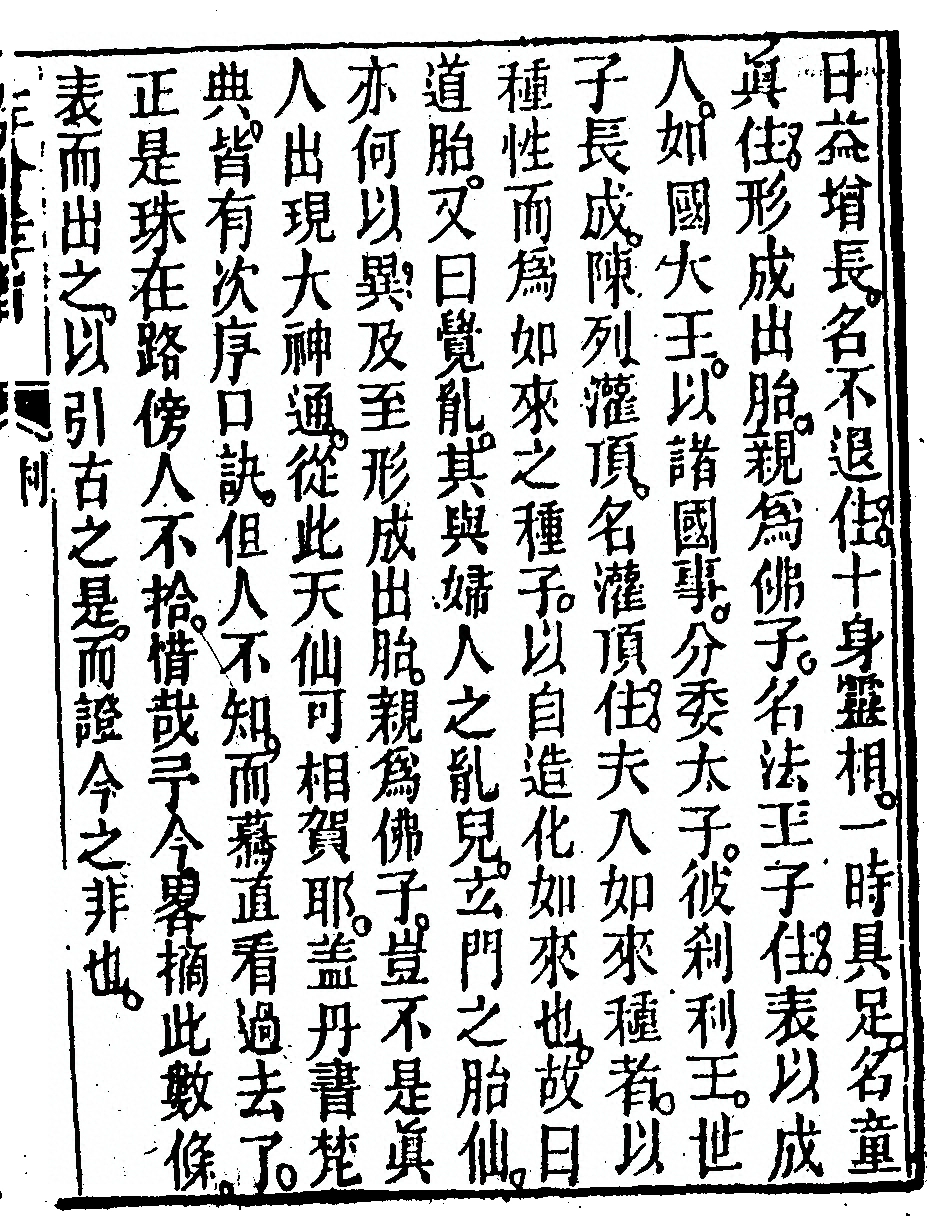 日益增長。名不退住。十身靈相。一時具足。名童
眞住。形成出胎。親爲佛子。名法王子住。表以成
人。如國大王。以諸國事。分委太子。彼刹利王。世
子長成。陳列灌頂。名灌頂住。夫入如來種者。以
種性而爲如來之種子。以自造化如來也。故曰
道胎。又曰覺胤。其與婦人之胤兒。玄門之胎仙。
亦何以異。及至形成出胎。親爲佛子。豈不是眞
人出現大神通。從此天仙可相賀耶。盖丹書梵
典。皆有次序口訣。但人不知。而驀直看過去了。
正是珠在路傍人不拾。惜哉。予今畧摘此數條。
表而出之。以引古之是。而證今之非也。